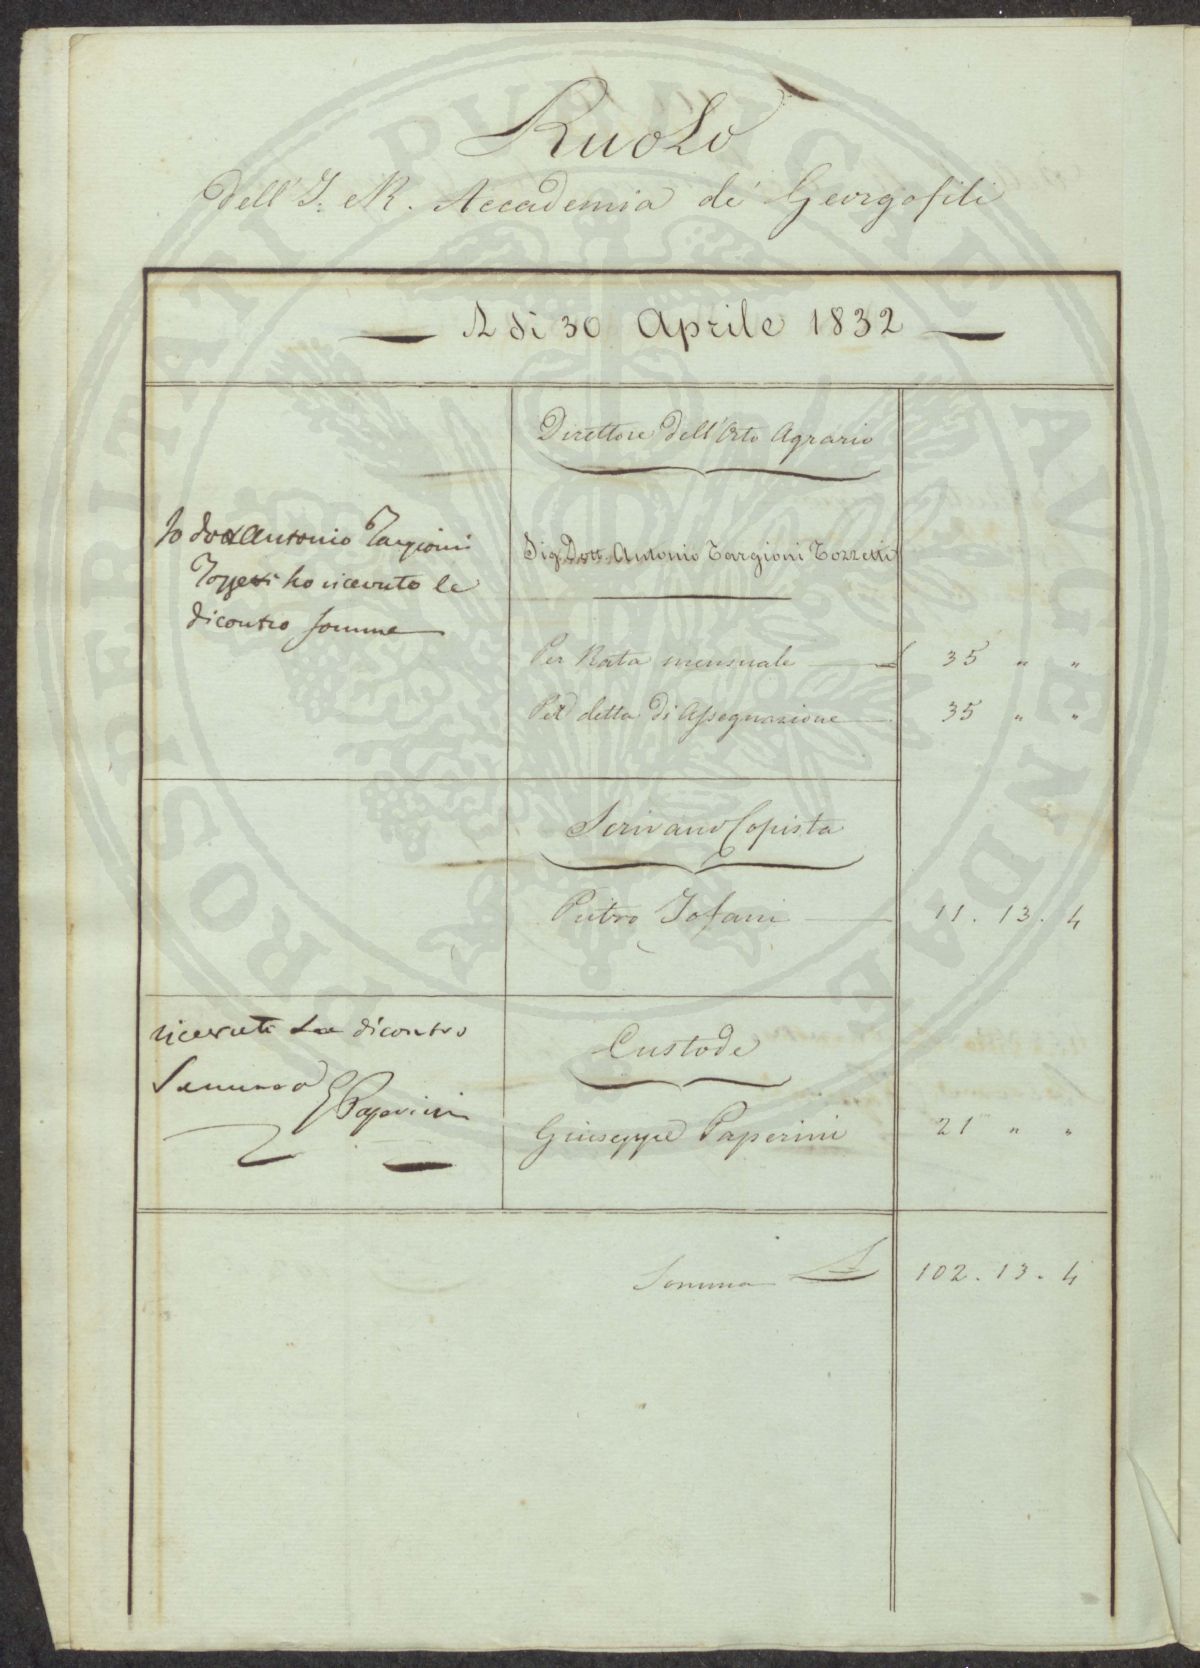 Ruolo
dell' I. e R. Accademia de' Georgofili
A dì 30 Aprile 1832
Direttore dell'Orto Agrario
Io dott Antonio Targioni
Tozzetti ho ricevuto le
dicontro somme
Sig. Dott. Antonio Targioni Tozzetti
Per Rata mensuale £ 35 " "
Per detta di Assegnazione 35 " "
Scrivano Copista
Pietro Tofani 11. 13. 4
ricevuto la dicontro
Somma
G Paperini
Custode
Giuseppe Paperini 21 " "
Somma £ 102. 13. 4
PROSPERITATI PUBLICAE AUGENDAE